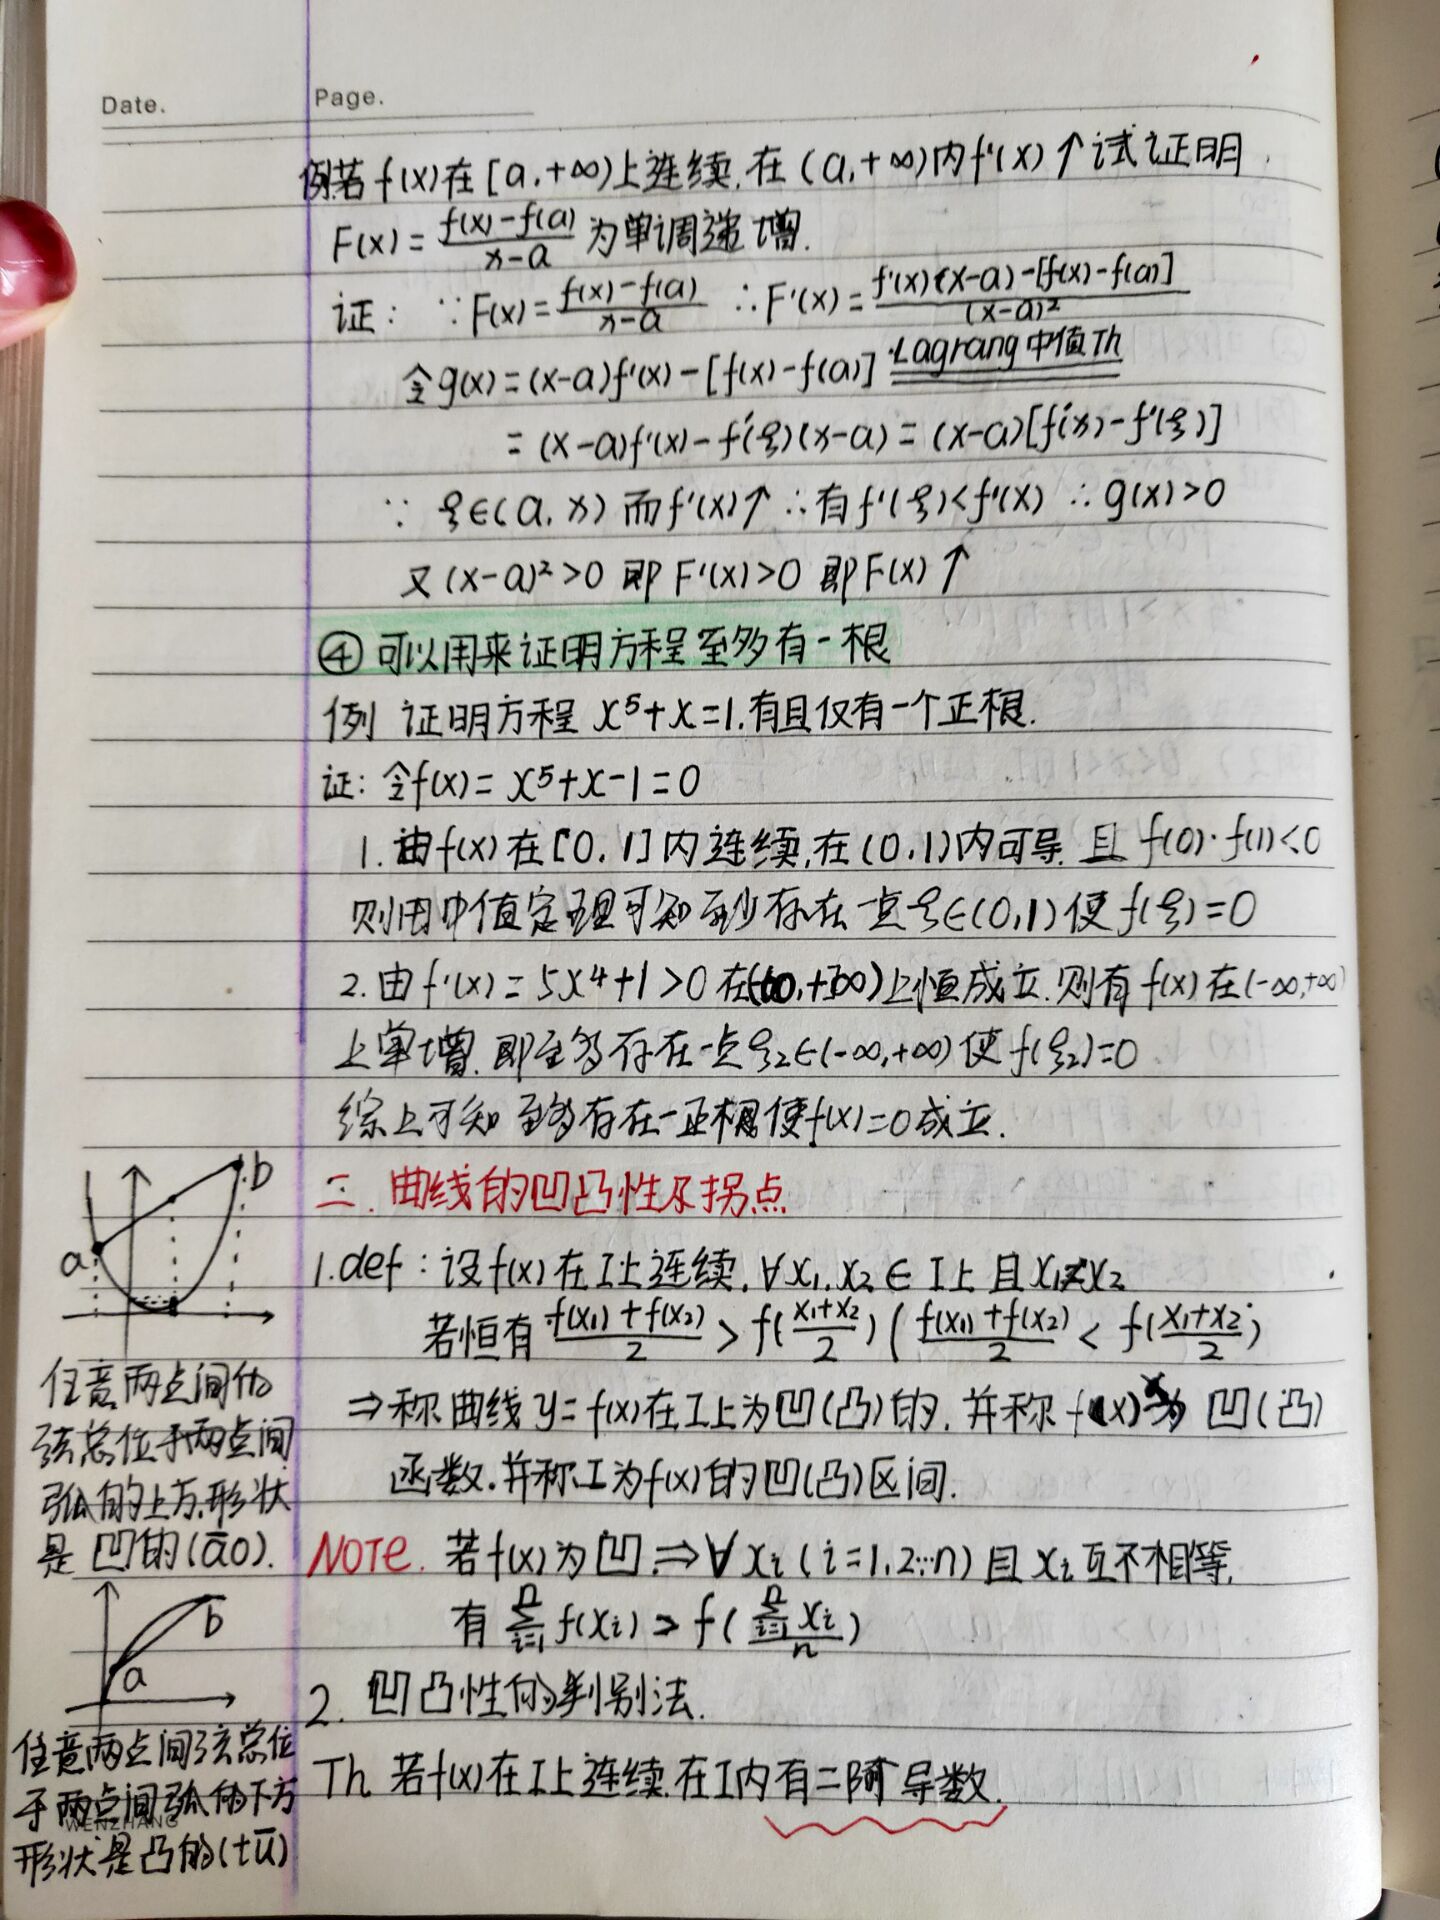 Date.
Page.
例若f(x)在[a,+∞)上连续,在(a,+∞)内f'(x)↑试证明
F(x)=\frac{f(x)-f(a)}{x-a}为单调递增.
证: ∵F(x)=\frac{f(x)-f(a)}{x-a} ∴F'(x)=\frac{f'(x)(x-a)-[f(x)-f(a)]}{(x-a)²}
令g(x)=(x-a)f'(x)-[f(x)-f(a)] Lagrang中值Th
=(x-a)f'(x)-f'(ξ)(x-a)=(x-a)[f'(x)-f'(ξ)]
∵ ξ∈(a,x)而f'(x)↑∴有f'(ξ)<f'(x) ∴g(x)>0
又(x-a)²>0即F'(x)>0即F(x)↑
④可以用来证明方程至多有一根
例 证明方程 x⁵+x=1.有且仅有一个正根.
证:令f(x)=x⁵+x-1=0
1.由f(x)在[0,1]内连续,在(0,1)内可导.且f(0)·f(1)<0
则用中值定理可知至少存在一点ξ∈(0,1)使f(ξ)=0
2.由f'(x)=5x⁴+1>0在(-∞,+∞)上恒成立.则有f(x)在(-∞,+∞)
上单增.即至多存在一点ξ₂∈(-∞,+∞)使f(ξ₂)=0
综上可知至多存在一正根使f(x)=0成立.
二.曲线的凹凸性及拐点
1.def:设f(x)在I上连续.∀x₁,x₂∈I上且x₁≠x₂
若恒有\frac{f(x₁)+f(x₂)}{2}>f(\frac{x₁+x₂}{2})(\frac{f(x₁)+f(x₂)}{2}<f(\frac{x₁+x₂}{2})
⇒称曲线y=f(x)在I上为凹(凸)的.并称f(x)为凹(凸)
函数.并称I为f(x)的凹(凸)区间.
NOTE.若f(x)为凹⇒∀xᵢ(i=1,2…n)且xᵢ互不相等,
有\sum_{i=1}^{n}f(xᵢ)>f(\frac{\sum_{i=1}^{n}xᵢ}{n})
2.凹凸性的判别法.
Th 若f(x)在I上连续.在I内有二阶导数.
a
b
任意两点间的
弦总位于两点间
弧的上方,形状
是凹的(āo).
a
b
任意两点间弦总位
于两点间弧的下方
形状是凸的(tū)
WENZHANG